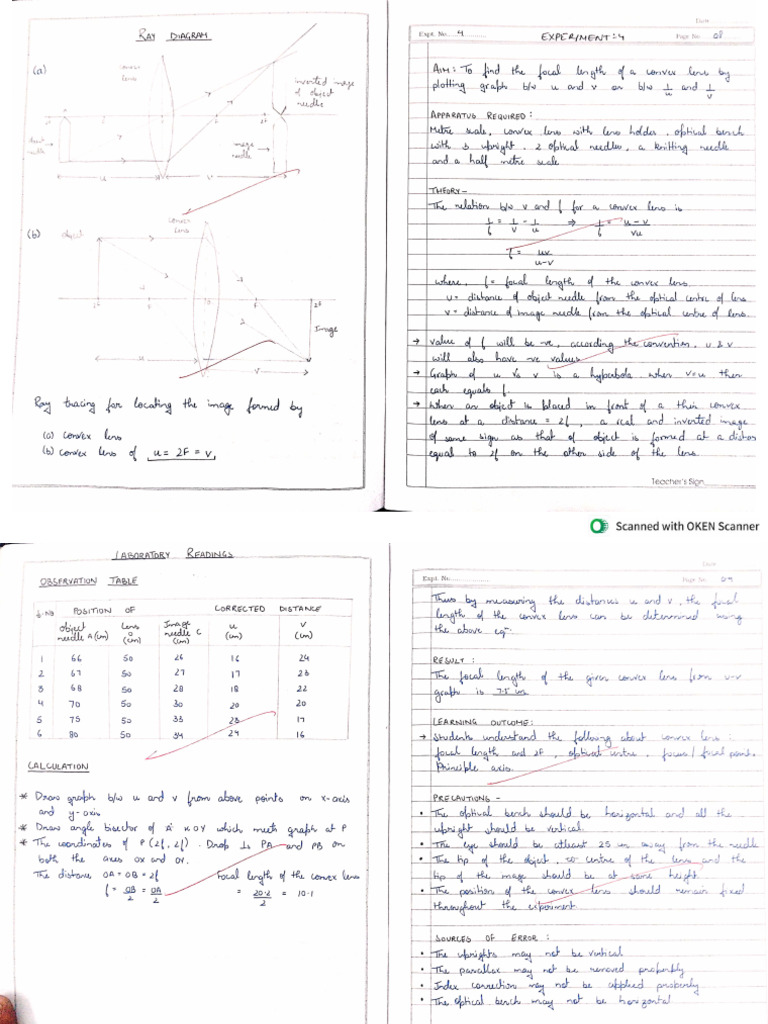 RAY DIAGRAM
(a)
convex
lens
inverted image
of object
needle
object
needle
image
needle
2F
u
v
(b)
object
convex
lens
2F
2F
Image
u
v
Ray tracing for locating the image formed by
(a) convex lens
(b) convex lens of u = 2F = v
Date
Expt. No. 4
Page No. 08
EXPERIMENT: 4
AIM: To find the focal length of a convex lens by
plotting graph b/w u and v or b/w 1/u and 1/v
APPARATUS REQUIRED:
Metre scale, convex lens with lens holder, optical bench
with 3 upright, 2 optical needles, a knitting needle
and a half metre scale
THEORY-
The relation b/w v and f for a convex lens is
1/f = 1/v - 1/u ⇒ 1/f = u-v/vu
f = uv/u-v
where, f = focal length of the convex lens.
u = distance of object needle from the optical centre of lens
v = distance of image needle from the optical centre of lens.
→ value of f will be -ve, according the convention, u & v
will also have -ve values
→ Graph of u vs v is a hyperbola when v=u then
each equals f.
→ When an object is placed in front of a thin convex
lens at a distance = 2f, a real and inverted image
of same sign as that of object is formed at a distan
equal to 2f on the other side of the lens.
Teacher's Sign
Scanned with OKEN Scanner
LABORATORY READINGS
OBSERVATION TABLE
S.NO POSITION OF CORRECTED DISTANCE
object needle A (cm) Lens O (cm) Image needle C (cm) u (cm) v (cm)
1 66 50 26 16 24
2 67 50 27 17 23
3 68 50 28 18 22
4 70 50 30 20 20
5 75 50 33 23 17
6 80 50 34 24 16
CALCULATION
* Draw graph b/w u and v from above points on x-axis
and y-axis
* Draw angle bisector of A' x O Y which meets graph at P
* The coordinates of P (2f, 2f). Drop ⊥s PA and PB on
both the axes OX and OY.
The distans OA = OB = 2f Focal length of the convex lens
f = OB/2 = OA/2 = 20.2/2 = 10.1
Date
Expt. No.
Page No. 09
Thus by measuring the distances u and v, the focal
length of the convex lens can be determined using
the above eqn.
RESULT:
The focal length of the given convex lens from u-v
graph is 7.5 cm
LEARNING OUTCOME:
→ Students understand the following about convex lens:
focal length and 2F, optical centre, focus / focal point.
Principle axis.
PRECAUTIONS -
• The optical bench should be horizontal and all the
upright should be vertical.
• The eye should be atleast 25 cm away from the needle
• The tip of the object, centre of the lens and the
tip of the image should be at same height.
• The position of the convex lens should remain fixed
throughout the experiment.
SOURCES OF ERROR:
• The uprights may not be vertical
• The parallax may not be removed properly
• Index correction may not be applied properly
• The optical bench may not be horizontal